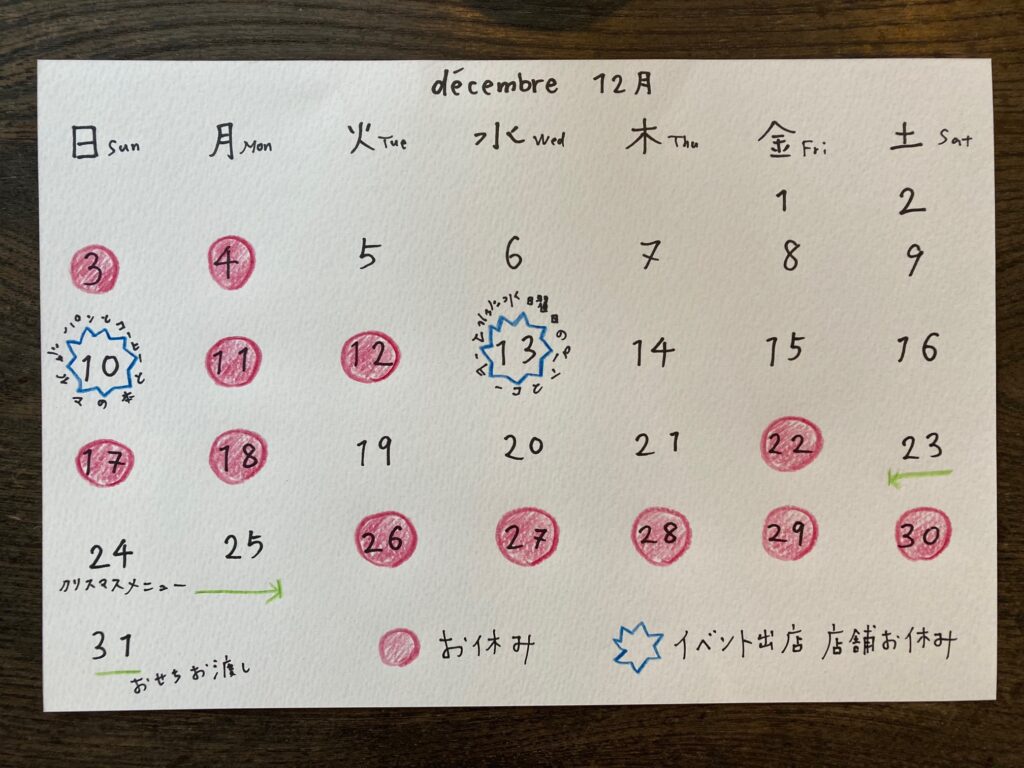 décembre 12月
日 Sun 月 Mon 火 Tue 水 Wed 木 Thu 金 Fri 土 Sat
1 2
3 4 5 6 7 8 9
パンとコーヒーと
日曜日のパンとコー
10 11 12 13 14 15 16
17 18 19 20 21 22 23
24 25 26 27 28 29 30
クリスマスメニュー
31
おせちお渡し
お休み
イベント出店 店舗お休み